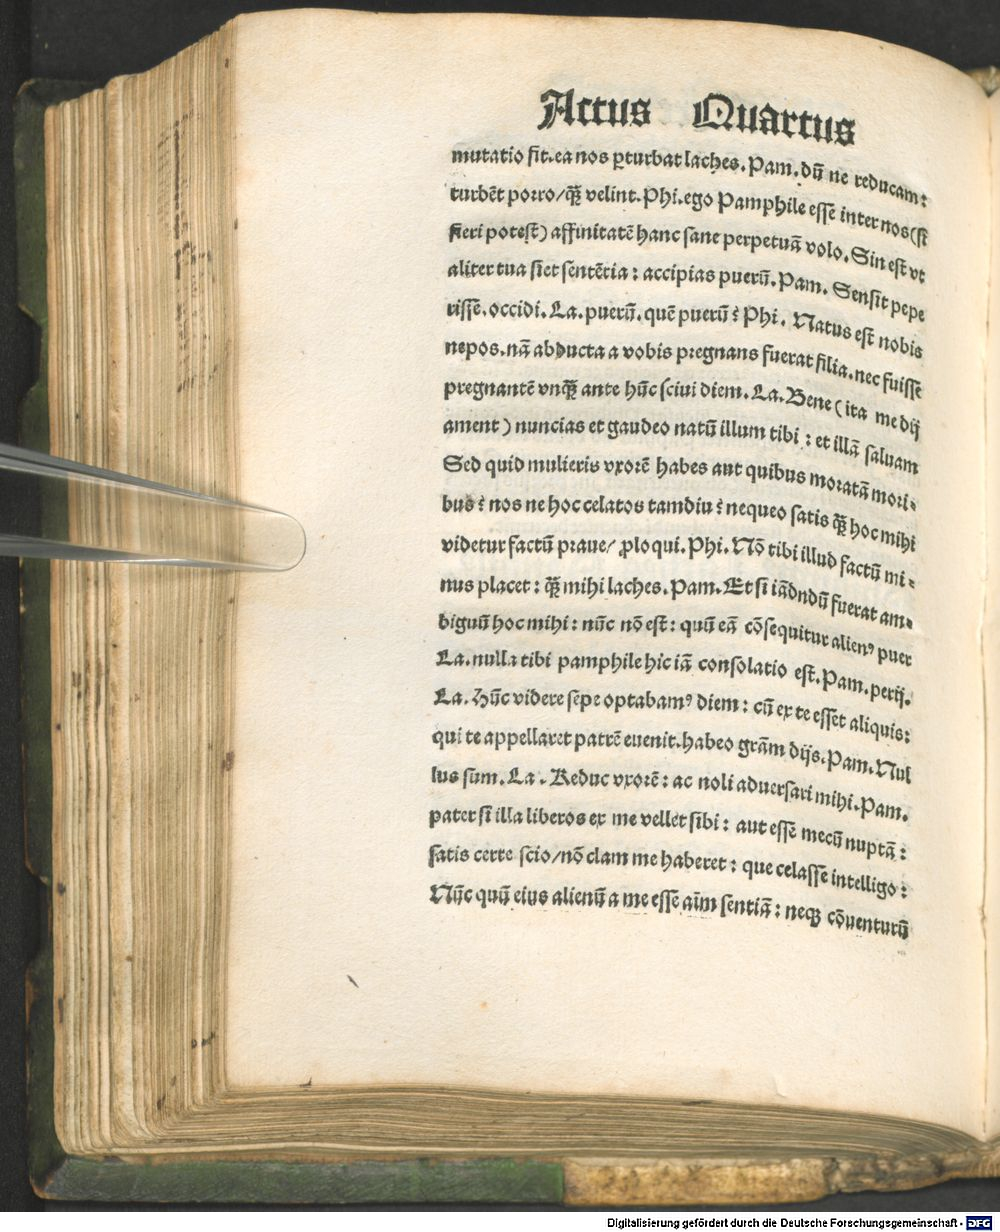 Actus Quartus
mutatio fit.ea nos ꝑturbat laches. Pam. dū ne reducam:
turbēt porro/qꝫ̄ velint. Phi.ego Pamphile esse inter nos (si
fieri potest) affinitatē hanc sane perpetuā volo. Sin est vt
aliter tua siet sentētia: accipias puerū. Pam. Sensit pepe
risse.occidi. La. puerū. quē puerū? Phi. Natus est nobis
nepos.nā abducta a vobis pregnans fuerat filia.nec fuisse
pregnantē vnqꝫ̄ ante hūc sciui diem. La. Bene (ita me dij
ament) nuncias et gaudeo natū illum tibi: et illā saluam
Sed quid mulieris vxorē habes aut quibus moratā mori⸗
bus? nos ne hoc celatos tamdiu? nequeo satis qꝫ̄ hoc mihi
videtur factū praue/ ꝓloqui. Phi. Nō tibi illud factū mi⸗
nus placet: qꝫ̄ mihi laches. Pam. Et si iādndū fuerat am⸗
biguū hoc mihi: nūc nō est: quū eā cōsequitur alienꝰ puer
La. nulla tibi pamphile hic iā consolatio est. Pam. perij.
La. Hūc videre sepe optabamꝰ diem: cū ex te esset aliquis:
qui te appellaret patrē euenit.habeo grām dijs. Pam. Nul
lus sum. La. Reduc vxorē: ac noli aduersari mihi. Pam.
pater si illa liberos ex me vellet sibi: aut esse mecū nuptā:
satis certe scio/nō clam me haberet: que celasse intelligo:
Nūc quū eius alienū a me esse aīm sentiā: neqꝫ cōuenturū
Digitalisierung gefördert durch die Deutsche Forschungsgemeinschaft - DFG